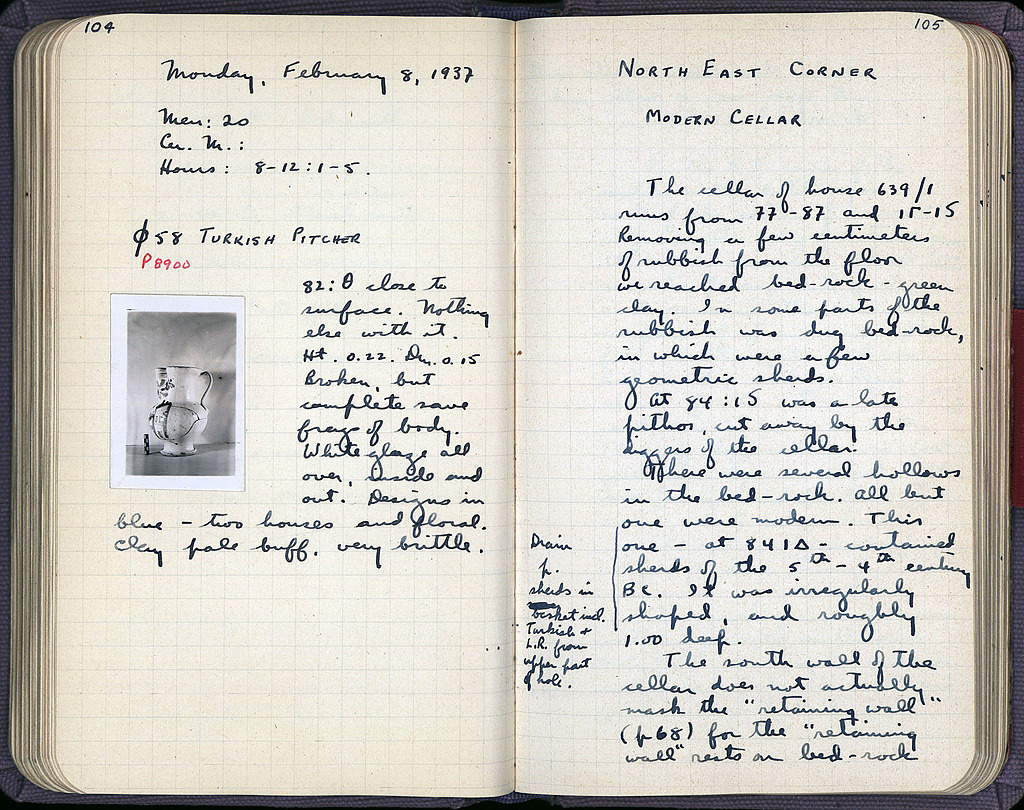 104
Monday, February 8, 1937
Men: 20
Ca. M.:
Hours: 8-12:1-5.
ϕ58 TURKISH PITCHER
P8900
82:Θ close to
surface. Nothing
else with it.
Ht. 0.22. Dm. 0.15
Broken, but
complete save
frags of body.
White glaze all
over, inside and
out. Designs in
blue - two houses and floral.
Clay pale buff, very brittle.
105
NORTH EAST CORNER
MODERN CELLAR
The cellar of house 639/1
runs from 77-87 and
Removing a few centimeters
of rubbish from the floor
we reached bed-rock - green
clay. In some parts of the
rubbish was dug bed-rock,
in which were a few
geometric sherds.
At 84:15 was a late
pithos, cut away by the
diggers of the cellar.
There were several hollows
in the bed-rock. All but
one were modern. This
one - at 84 - contained
sherds of the 5th - 4th century
BC. It was irregularly
shaped, and roughly
1.00 deep.
The south wall of the
cellar does not actually
mask the "retaining wall"
(p68) for the "retaining
wall" rests on bed-rock
Drain
p.
sherds in
basket incl.
Turkish +
L.R. from
upper part
of hole.